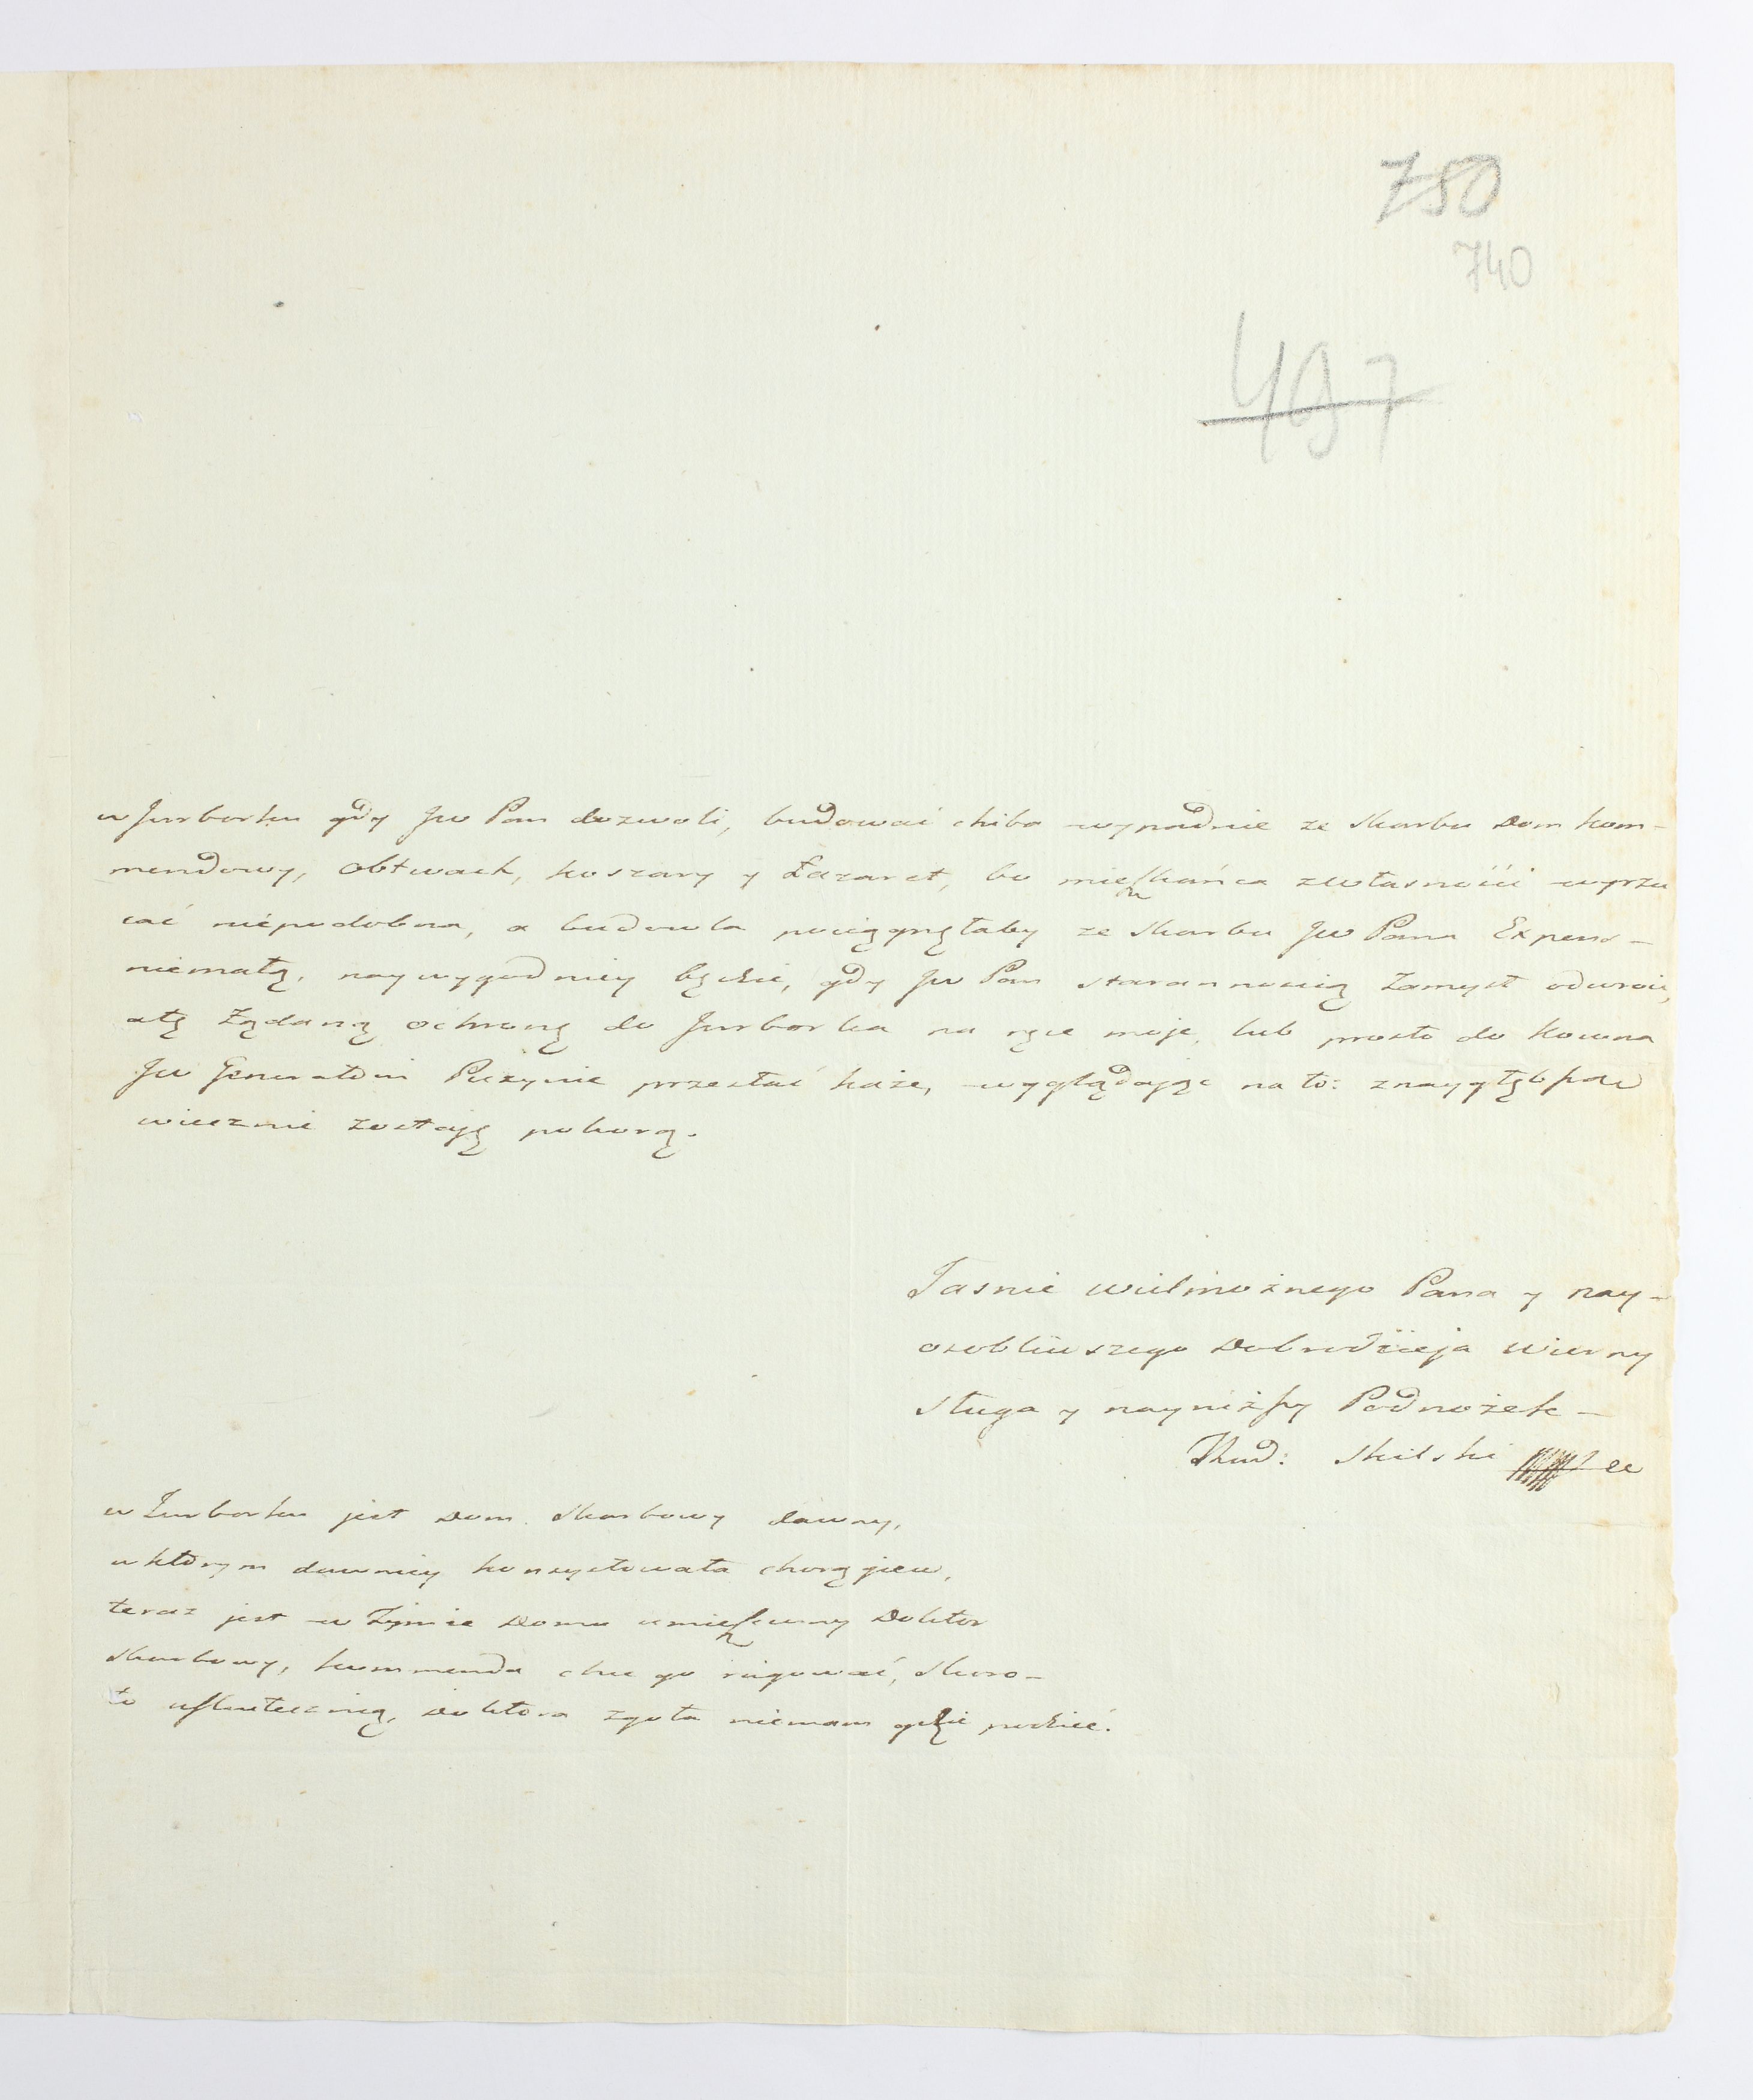 750
740
497
w Jurborku gdy Jw Pan dozwoli, budować chiba wypadnie ze skarbu Dom kom-
mendowy, obtwach, koszary y Łazaret, bo mieszkańca zwłasności wyrzu
cać niépodobna, a budowla pociągnęłaby ze skarbu Jw Pana Expens-
niemałą, naywygodniey będzie, gdy Jw Pan starannością Zamysł odwroci,
atę Żądaną ochronę do Jurborka na ręce moje, lub prosto do kowna
Jw Generałowi Puzynie przesłać każe, wyglądając na to: znaygłębszą
wiecznie zostaję pokorą.
Jasnie wielmożnego Pana y nay-
osobliwszego Dobrodzieja wierny
sługa y nayniższy Podnożek -
Skilski
w Jurborku jest Dom skarbowy dawny,
w którym dawniey konsystowała chorągiew,
teraz jest w Tymie Domu umieszczony Doktor
skarbowy, kommenda chce go rugować, skoro-
to uskutecznią, doktora zgoła niemam gdzie podzieć.